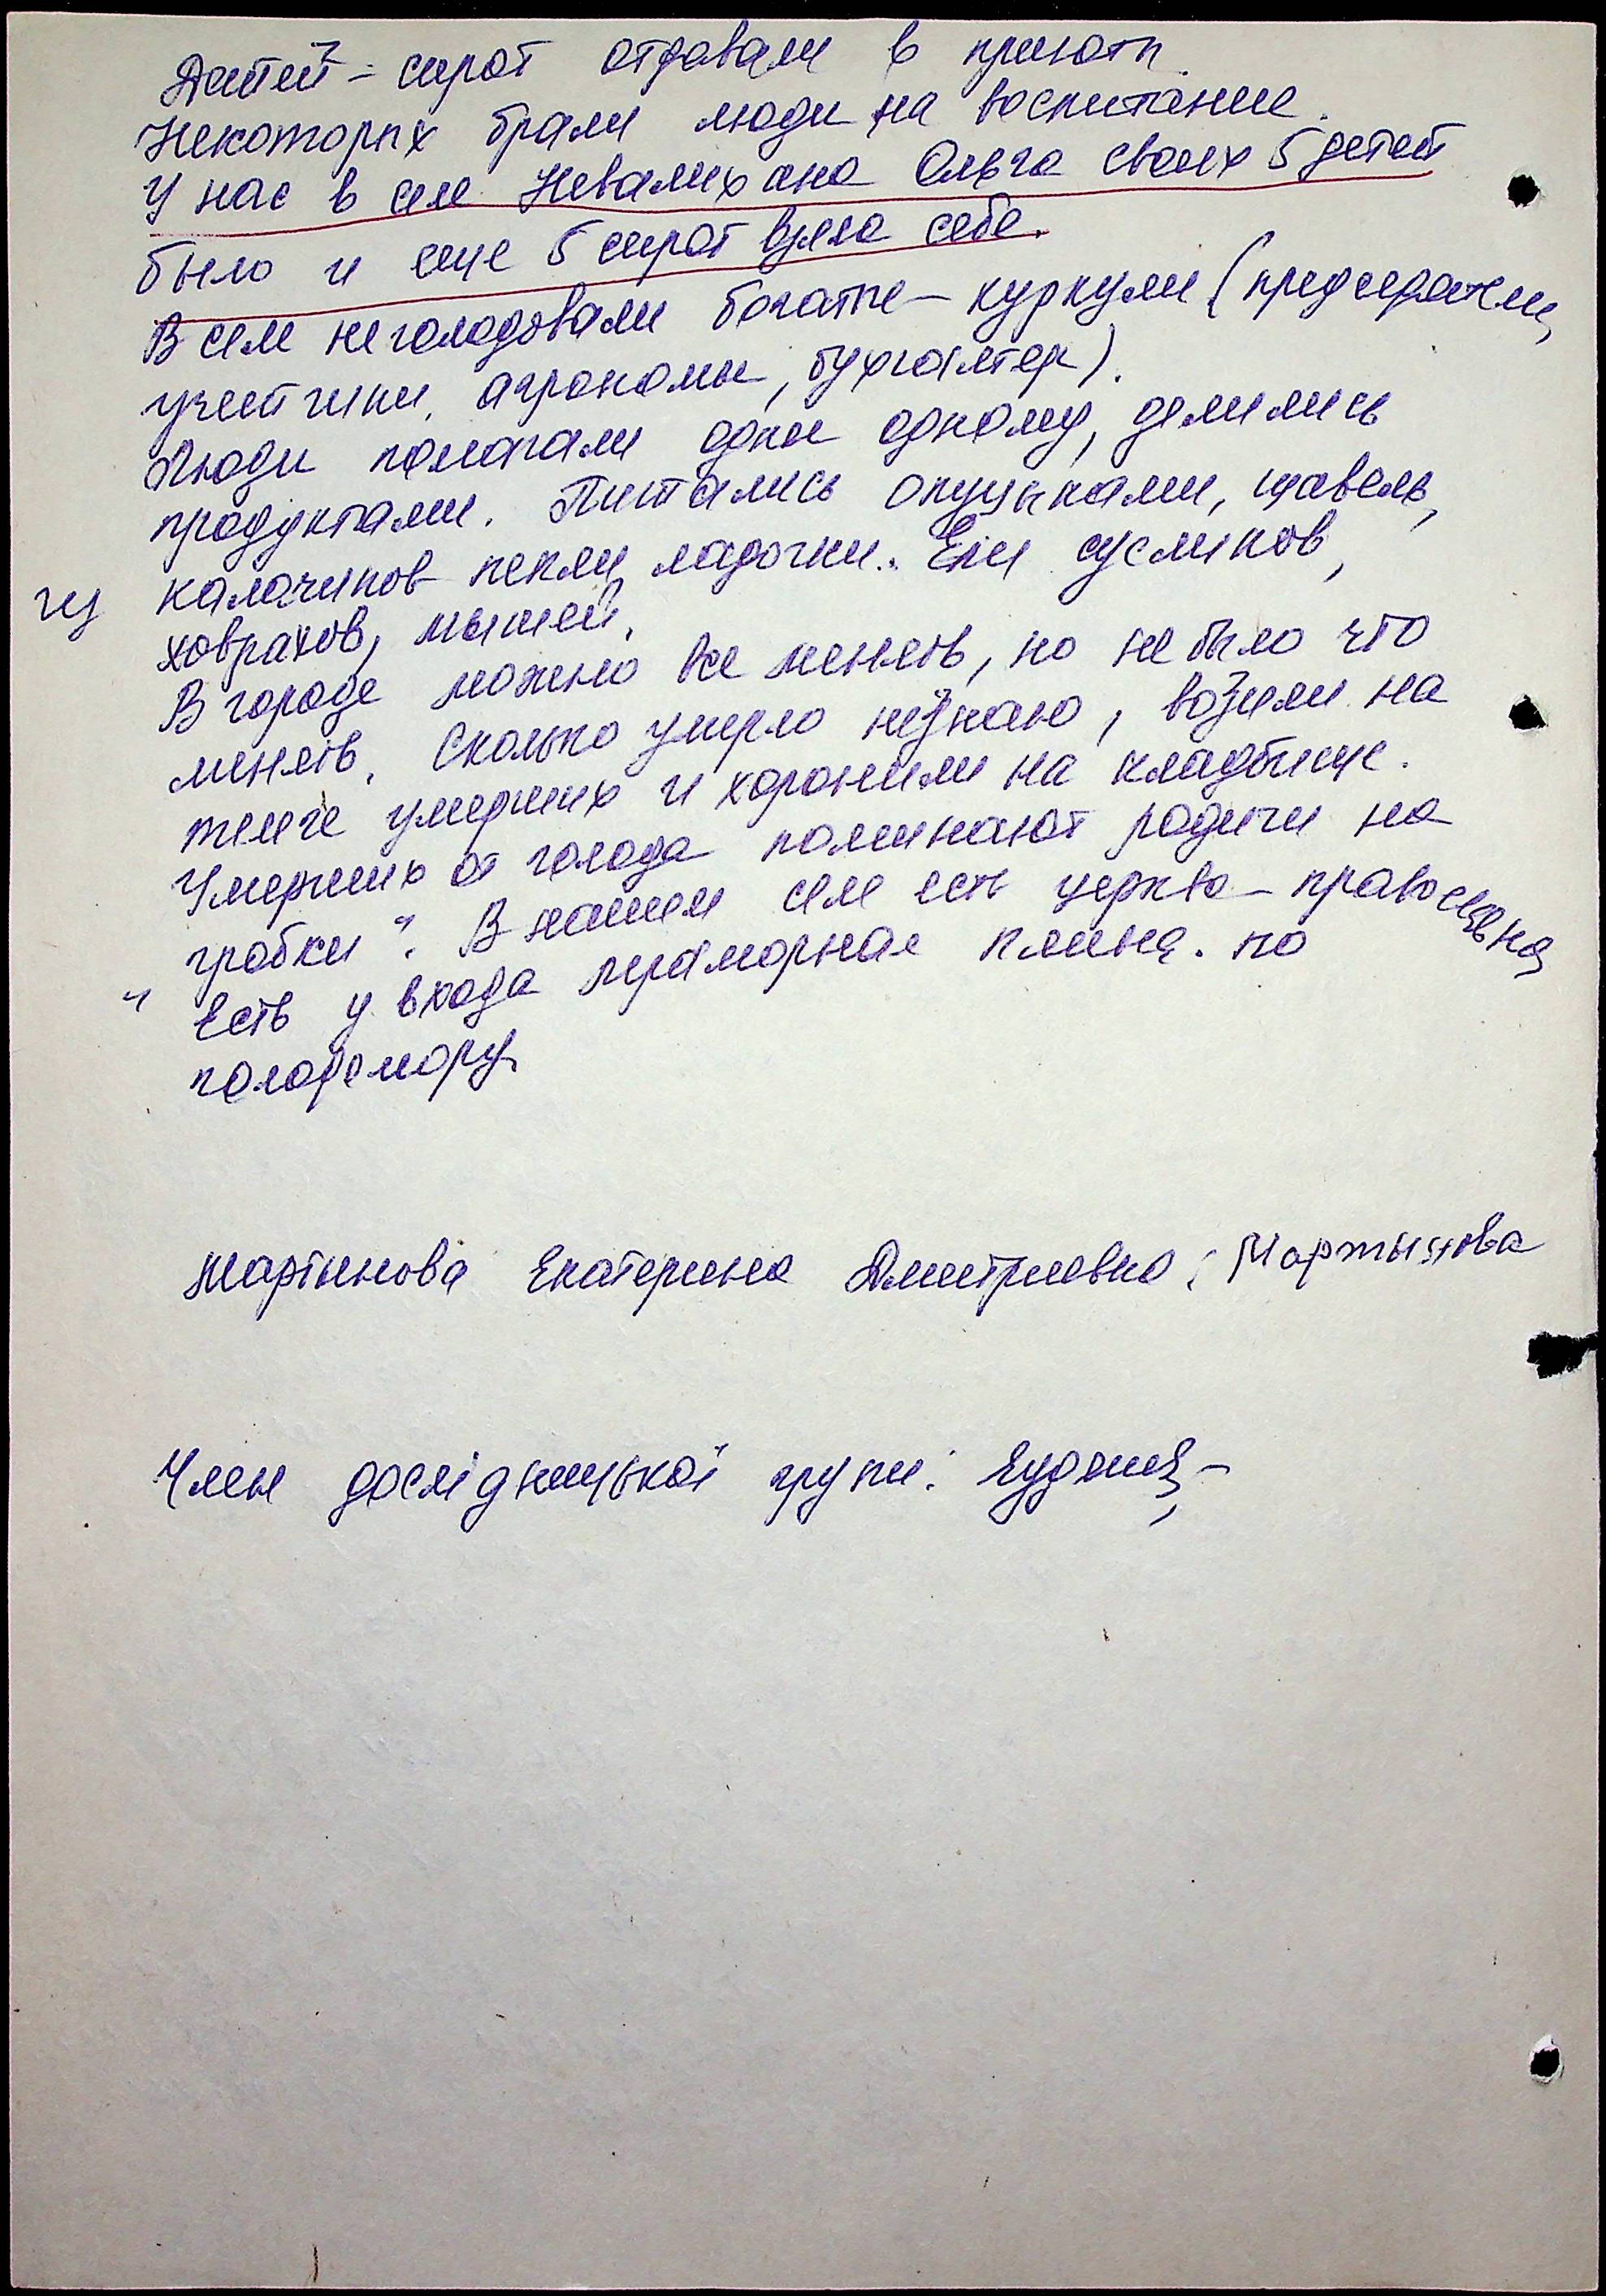 Дитей - сирот отдавали в приюти.
Некоторых брали люди на воспитание.
У нас в селе Невалихана Ольга своих 5 детей
было и еще 5 сирот взяла себе.
В селе не голодовали богати - куркули (председатели,
учетчики, агрономы, бухгалтер).
Люди помогали одни одному, делились
продуктами. Питались опуцьками, щавель,
из калачиков пекли ладочки. Ели сусликов,
ховрахов, мышей.
В городе можно все менять, но не было что
менять. Сколько умерло не знаю, возили на
тилеге умерших и хоронили на кладбище.
Умерших от голода поминают родичи на
"гробки". В нашем селе есть церква - православная
Есть у входа мраморная плина. по
голодомору.
Мартинова Екатерина Дмитриевна: Мартынова
Член дослідницької групи: